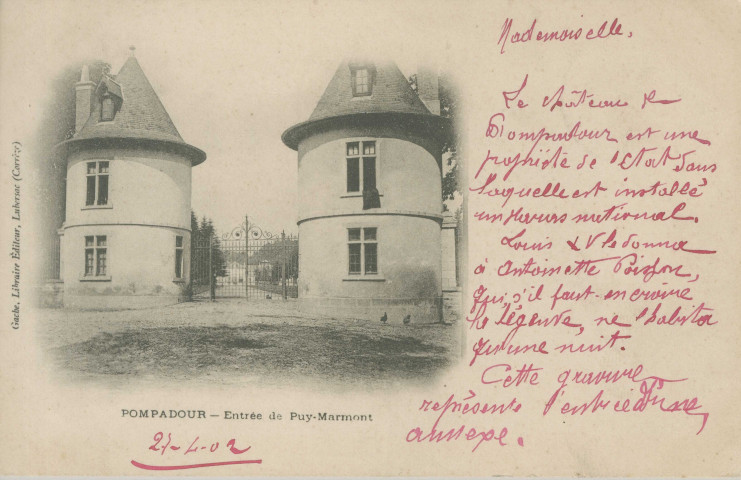 Mademoiselle,
Le château de
Pompadour est une
propriété de l'Etat dans
laquelle est installé
un Haras national.
Louis XV le donna
à Antoinette Poisson,
qui, s'il faut en croire
la légende, ne l'habita
qu'une nuit.
Cette gravure
représente l'entrée d'une
annexe.
Gache, Libraire Éditeur, Lubersac (Corrèze)
POMPADOUR — Entrée de Puy-Marmont
27-4-02